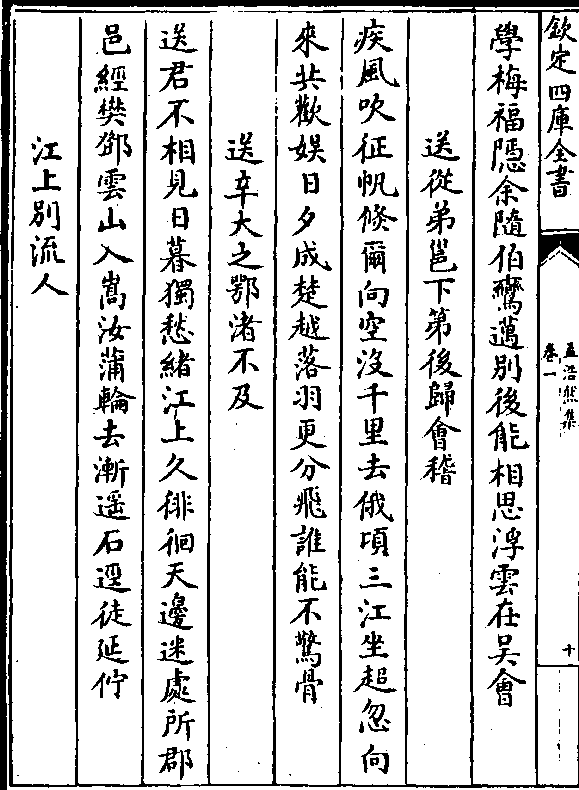 欽定四庫全書
孟浩然集
卷一
十
學梅福隠余隨伯鸞邁別後能相思浮雲在吳會
送從弟邕下第後歸會稽
疾風吹征帆倐爾向空沒千里去俄頃三江坐超忽向
來共歡娱日夕成楚越落羽更分飛誰能不驚骨
送辛大之鄂渚不及
送君不相見日暮獨愁緒江上久徘徊天邊迷處所郡
邑經樊鄧雲山入嵩汝蒲輪去漸遥石逕徒延佇
江上別流人